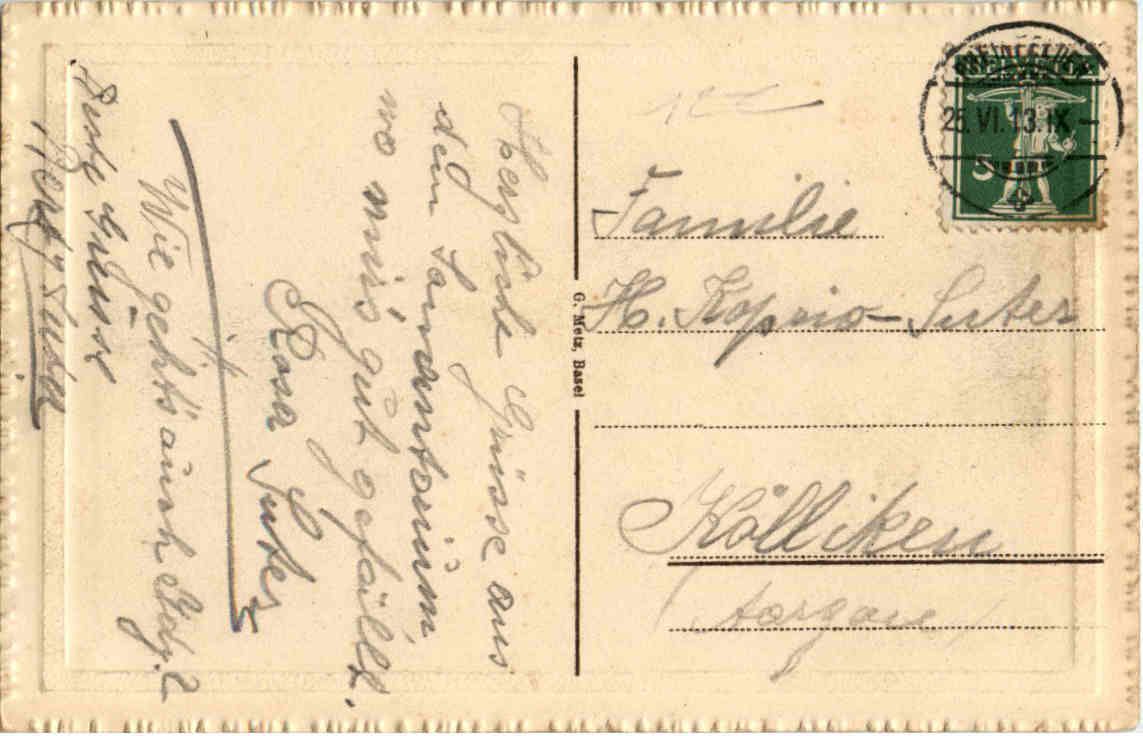 Herzliche Grüsse aus
dem Sanantorium,
wo mirs gut gefällt.
Rosa Suter
Wie gehts auch
Beste Grüsse
G. Metz, Basel
RHEINFELDEN
25.VI.13.IX
5
Familie
H. Suter
Kölliken
Aargau